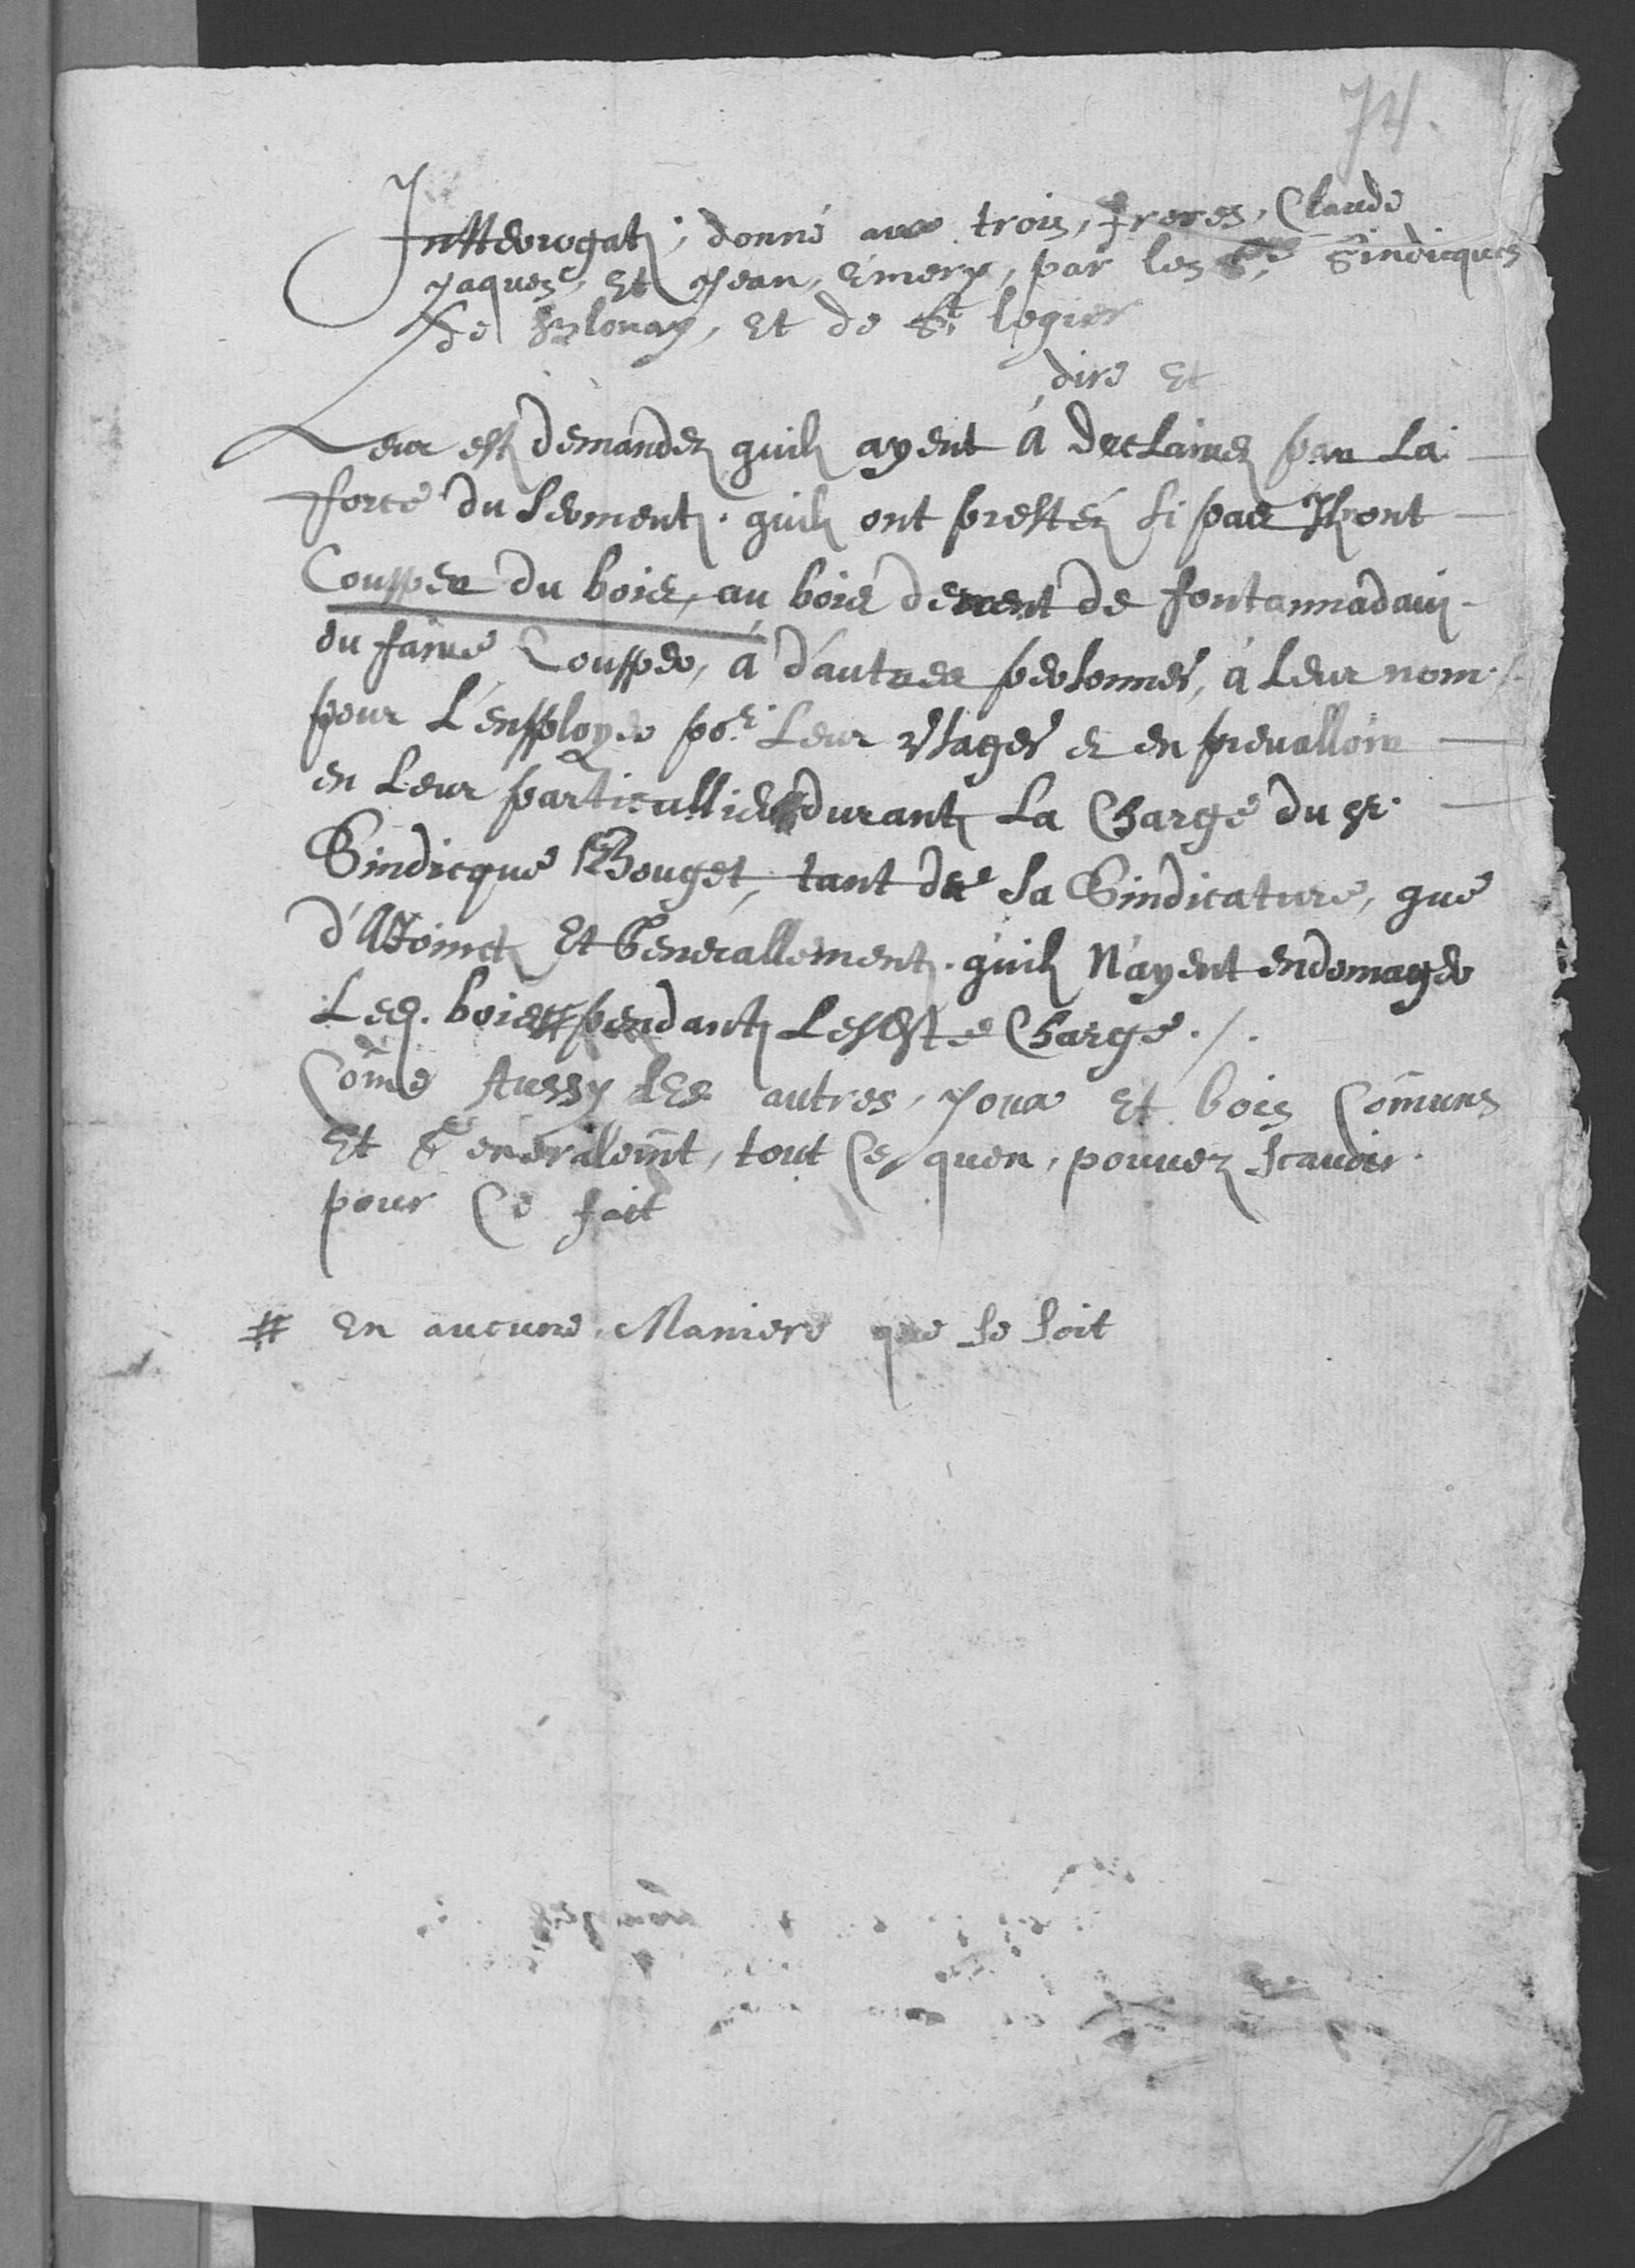 74.
Intterrogatz, donné aux trois, freres, Claude
Jaques, Et Jean, Emery, par les Srs Sindicques
de Blonay, Et de St legier
dire Et
Leur est demandez quilz ayent á declairer par La
force du serment, quilz ont prestéz si pas Ilz ont
Coupper du bois, au bois de de fontannadavi
ou faire Coupper, á d'autres personnes, á Leur nom
pour L'enployer por. Leur usages et en prevalloir
en Leur particullier durant La Charge du sr.
Sindicque Bouget, tant de sa Sindicature, que
d'Adoinct Et Generallement, quilz N'ayent endomager
Les. bois # pendant Leste Charge ./.
Come Aussy des autres, Joux Et bois Comuns
Et Generalemt, tout Ce, quen, pouvez scavoir
pour Ce fait
# En aucune Maniere que se soit